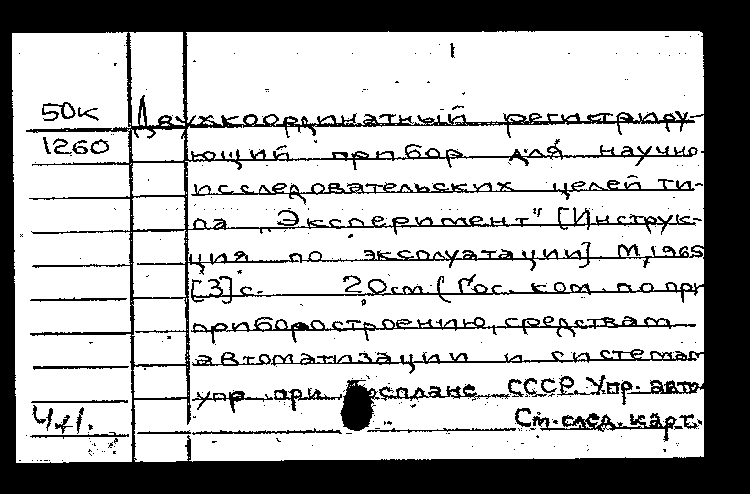 1
50К Двухкоординатный регистриру-
1260 ющий прибор для научно-
исследовательских целей ти-
па „Эксперимент" [Инструк-
ция по эксплуатации]. М, 1965
[3] с. 20см (Гос. ком. по пр
приборостроению, средствам
автоматизации и системам
упр. при Госплане СССР. Упр. авто
Ст. след. карт.